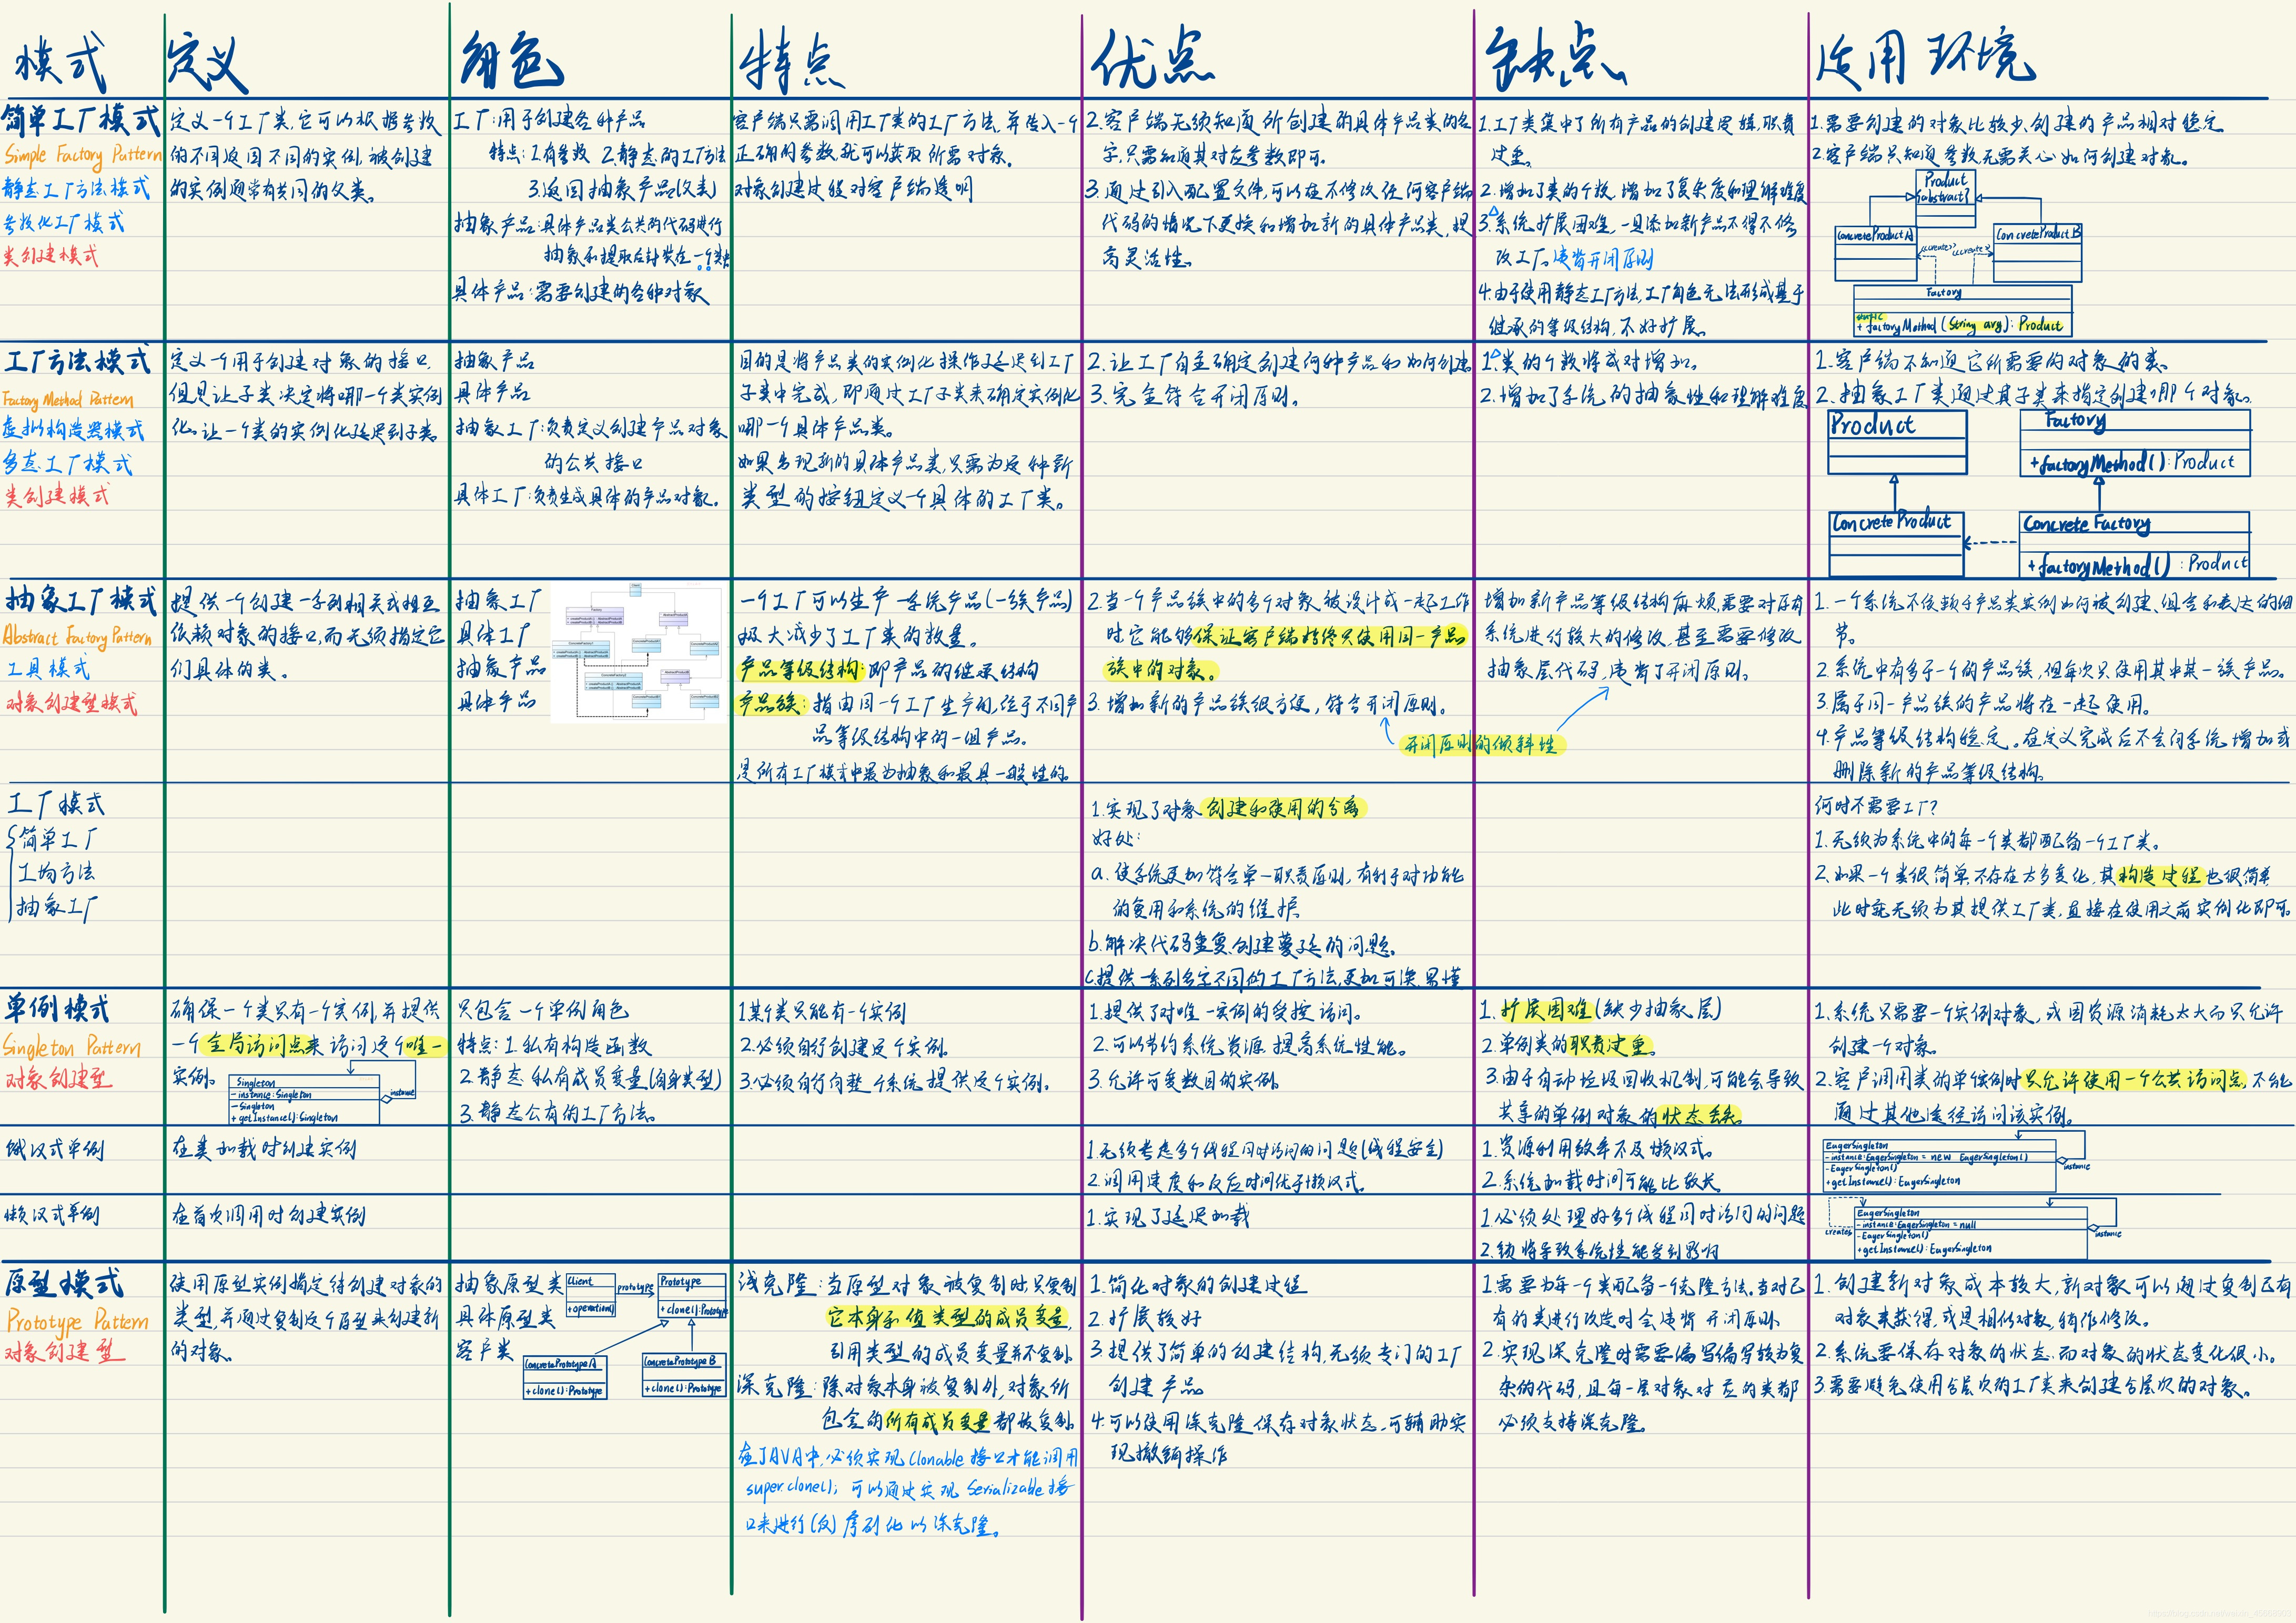 模式 定义 角色 特点 优点 缺点 适用环境
简单工厂模式
Simple Factory Pattern
静态工厂方法模式
参数化工厂模式
类创建模式
定义一个工厂类,它可以根据参数
的不同返回不同的实例,被创建
的实例通常有共同的父类。
工厂:用于创建各种产品
特点:1.有参数 2.静态的工厂方法
3.返回抽象产品(父类)
抽象产品:具体产品类公共的代码进行
抽象和提取后封装在一个类中
具体产品:需要创建的各种对象
客户端只需调用工厂类的工厂方法,并传入一个
正确的参数,就可以获取所需对象。
对象创建过程对客户端透明
2.客户端无须知道所创建的具体产品类的名
字,只需知道其对应参数即可。
3.通过引入配置文件,可以在不修改任何客户端
代码的情况下更换和增加新的具体产品类,提
高灵活性。
1.工厂类集中了所有产品的创建逻辑,职责
过重。
2.增加了类的个数,增加了复杂度和理解难度
3.系统扩展困难,一旦添加新产品不得不修
改工厂。违背开闭原则
4.由于使用静态工厂方法,工厂角色无法形成基于
继承的等级结构,不好扩展。
1.需要创建的对象比较少,创建的产品相对稳定
2.客户端只知道参数,无需关心如何创建对象。
Product
{abstract}
ConcreteProductA
ConcreteProductB
<<create>> <<create>>
Factory
static
+ factoryMethod(String arg): Product
工厂方法模式
Factory Method Pattern
虚拟构造器模式
多态工厂模式
类创建模式
定义一个用于创建对象的接口,
但是让子类决定将哪一个类实例
化。让一个类的实例化延迟到子类。
抽象产品
具体产品
抽象工厂:负责定义创建产品对象
的公共接口
具体工厂:负责生成具体的产品对象。
目的是将产品类的实例化操作延迟到工厂
子类中完成,即通过工厂子类来确定实例化
哪一个具体产品类。
如果出现新的具体产品类,只需为这种新
类型的按钮定义一个具体的工厂类。
2.让工厂自主确定创建何种产品和如何创建
3.完全符合开闭原则。
1.类的个数将成对增加。
2.增加了系统的抽象性和理解难度
1.客户端不知道它所需要的对象的类。
2.抽象工厂类通过其子类来指定创建哪个对象。
Product
Factory
+factoryMethod():Product
ConcreteProduct
Concrete Factory
+factoryMethod():Product
抽象工厂模式
Abstract Factory Pattern
工具模式
对象创建型模式
提供一个创建一系列相关或相互
依赖对象的接口,而无须指定它
们具体的类。
抽象工厂
具体工厂
抽象产品
具体产品
一个工厂可以生产一系统产品(一族产品)
极大减少了工厂类的数量。
产品等级结构:即产品的继承结构
产品族:指由同一个工厂生产的,位于不同产
品等级结构中的一组产品。
是所有工厂模式中最为抽象和最具一般性的。
2.当一个产品族中的多个对象被设计成一起工作
时它能够保证客户端始终只使用同一产品
族中的对象。
3.增加新的产品族很方便,符合开闭原则。
开闭原则的倾斜性
增加新产品等级结构麻烦,需要对原有
系统进行较大的修改,甚至需要修改
抽象层代码,违背了开闭原则。
1.一个系统不依赖于产品类实例如何被创建、组合和表达的细
节。
2.系统中有多于一个的产品族,但每次只使用其中某一族产品。
3.属于同一产品族的产品将在一起使用。
4.产品等级结构稳定。在定义完成后不会向系统增加或
删除新的产品等级结构。
工厂模式
简单工厂
工均方法
抽象工厂
1.实现了对象创建和使用的分离
好处:
a.使系统更加符合单一职责原则,有利于对功能
的复用和系统的维护
b.解决代码重复,创建蔓延的问题。
c.提供一系列名字不同的工厂方法,更加可读易懂
何时不需要工厂?
1.无须为系统中的每一个类都配备一个工厂类。
2.如果一个类很简单,不存在太多变化,其构造过程也很简单
此时就无须为其提供工厂类,直接在使用之前实例化即可。
单例模式
Singleton Pattern
对象创建型
确保一个类只有一个实例,并提供
一个全局访问点来访问这个唯一
实例。
Singleton
- instance: Singleton
- Singleton
+ getInstance(): Singleton
instance
只包含一个单例角色
特点:1.私有构造函数
2.静态私有成员变量(自身类型)
3.静态公有的工厂方法。
1某个类只能有一个实例
2.必须自行创建这个实例。
3.必须自行向整个系统提供这个实例。
1.提供了对唯一实例的受控访问。
2.可以节约系统资源,提高系统性能。
3.允许可变数目的实例。
1.扩展困难(缺少抽象层)
2.单例类的职责过重。
3.由于自动垃圾回收机制,可能会导致
共享的单例对象的状态丢失。
1.系统只需要一个实例对象,或因资源消耗太大而只允许
创建一个对象。
2.客户调用类的单个实例时只允许使用一个公共访问点,不能
通过其他途径访问该实例。
饿汉式单例
在类加载时创建实例
1.无须考虑多个线程同时访问的问题(线程安全)
2.调用速度和反应时间优于懒汉式.
1.资源利用效率不及懒汉式。
2.系统加载时间可能比较长
EagerSingleton
- instance: EagerSingleton = new EagerSingleton()
- EagerSingleton()
+ getInstance(): EagerSingleton
instance
懒汉式单例
在首次调用时创建实例
1.实现了延迟加载
1必须处理好多个线程同时访问的问题
2.锁将导致系统性能受到影响
creates
EagerSingleton
- instance: EagerSingleton = null
- EagerSingleton()
+ getInstance(): EagerSingleton
instance
原型模式
Prototype Pattern
对象创建型
使用原型实例指定待创建对象的
类型,并通过复制这个原型来创建新
的对象。
抽象原型类
具体原型类
客户类
Client
+operation()
prototype
Prototype
+ clone(): Prototype
ConcretePrototypeA
+ clone(): Prototype
ConcretePrototypeB
+ clone(): Prototype
浅克隆:当原型对象被复制时,只复制
它本身和值类型的成员变量,
引用类型的成员变量并不复制.
深克隆:除对象本身被复制外,对象所
包含的所有成员变量都被复制.
在JAVA中,必须实现Clonable接口才能调用
super.clone(); 可以通过实现Serializable接
口来进行(反)序列化以深克隆。
1.简化对象的创建过程
2.扩展较好
3.提供了简单的创建结构,无须专门的工厂
创建产品
4.可以使用深克隆保存对象状态,可辅助实
现撤销操作
1.需要为每一个类配备一个克隆方法,当对已
有的类进行改造时会违背开闭原则.
2.实现深克隆时需要编写编写较为复
杂的代码,且每一层对象对应的类都
必须支持深克隆。
1.创建新对象成本较大,新对象可以通过复制已有
对象来获得,或是相似对象,稍作修改。
2.系统要保存对象的状态,而对象的状态变化很小。
3.需要避免使用分层次的工厂类来创建分层次的对象。